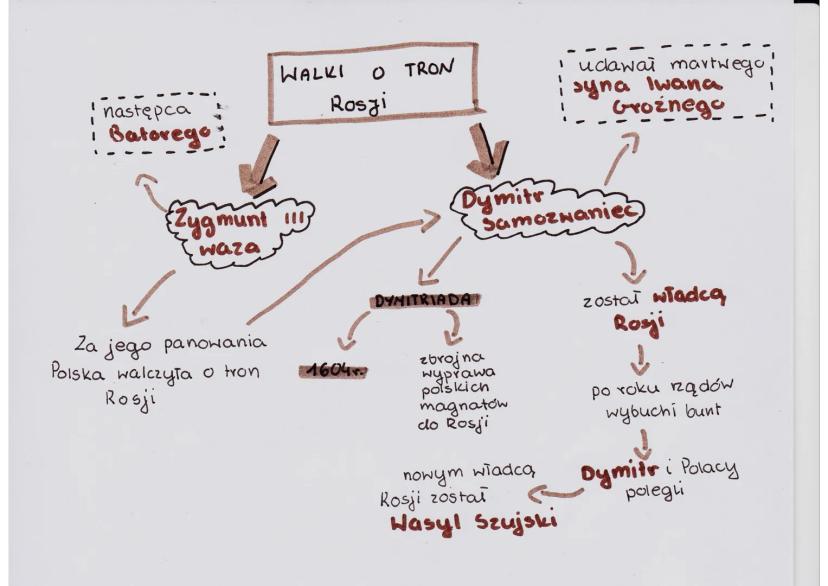 WALKI O TRON
Rosji
następca
Batorego
udawał martwego
syna Iwana
Groźnego
Zygmunt III
waza
Dymitr
samozwaniec
Za jego panowania
Polska walczyła o tron
Rosji
DYMITRIADA
1604r.
zbrojna
wyprawa
polskich
magnatów
do Rosji
został władcą
Rosji
po roku rządów
wybuchł bunt
Dymitr i Polacy
polegli
nowym władcą
Rosji został
Wasyl Szujski